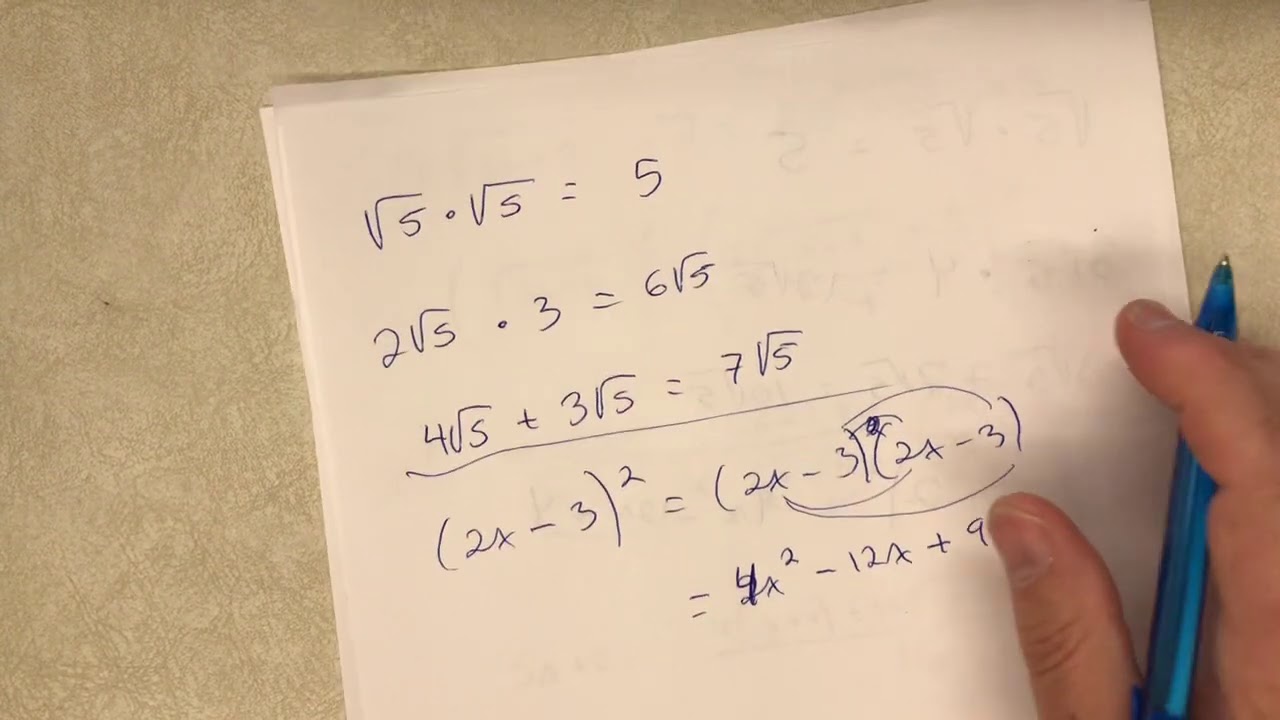 √5 · √5 = 5
2√5 · 3 = 6√5
4√5 + 3√5 = 7√5
(2x - 3)² = (2x - 3)(2x - 3)
= 4x² - 12x + 9